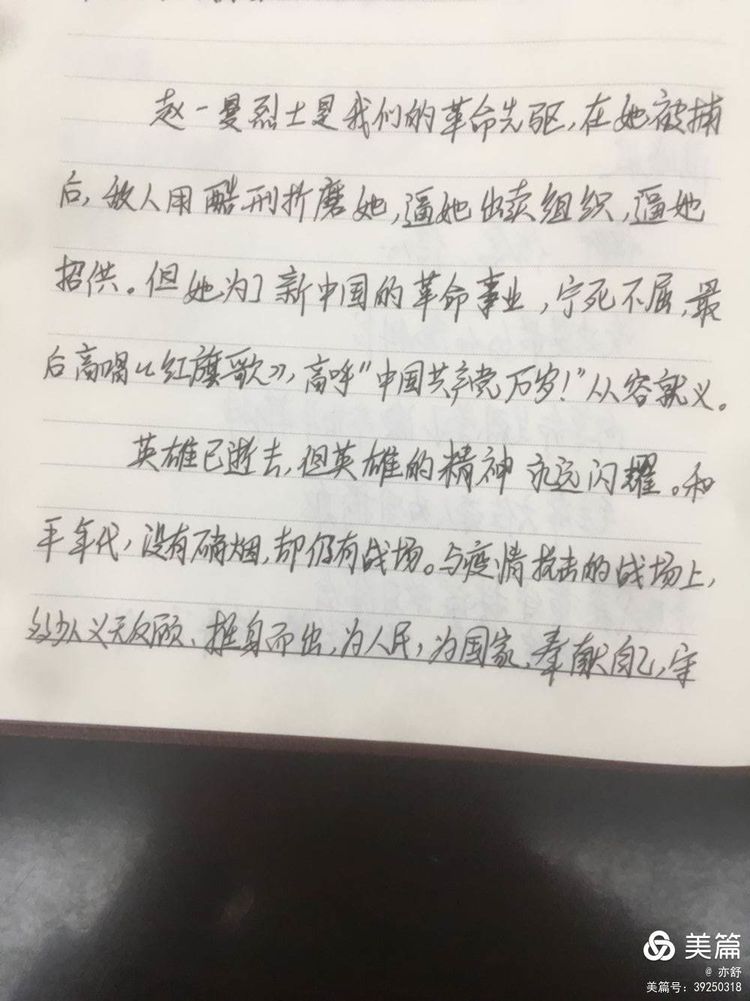 赵一曼烈士是我们的革命先驱，在她被捕
后，敌人用酷刑折磨她，逼她出卖组织，逼她
招供。但她为了新中国的革命事业，宁死不屈，最
后高唱《红旗歌》，高呼“中国共产党万岁！”从容就义。
英雄已逝去，但英雄的精神永远闪耀。和
平年代，没有硝烟，却仍有战场。与疫情抗击的战场上，
义无反顾、挺身而出，为人民，为国家，奉献自己，守
美篇
@ 亦舒
美篇号：39250318